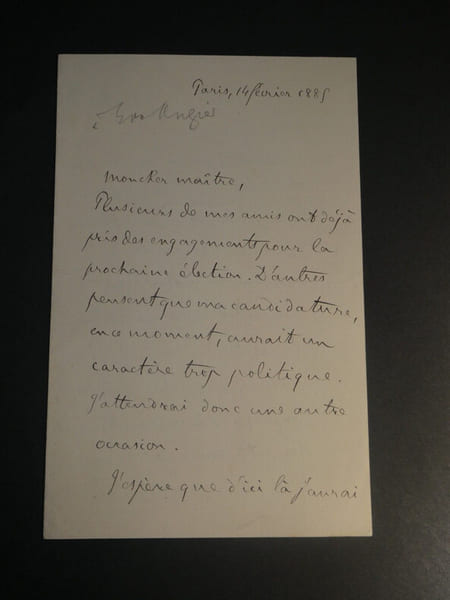 Paris, 14 février 1885
Mon cher maître,
Plusieurs de mes amis ont déjà
pris des engagements pour la
prochaine élection. D'autres
pensent que ma candidature,
en ce moment, aurait un
caractère trop politique.
J'attendrai donc une autre
occasion.
J'espère que d'ici là j'aurai